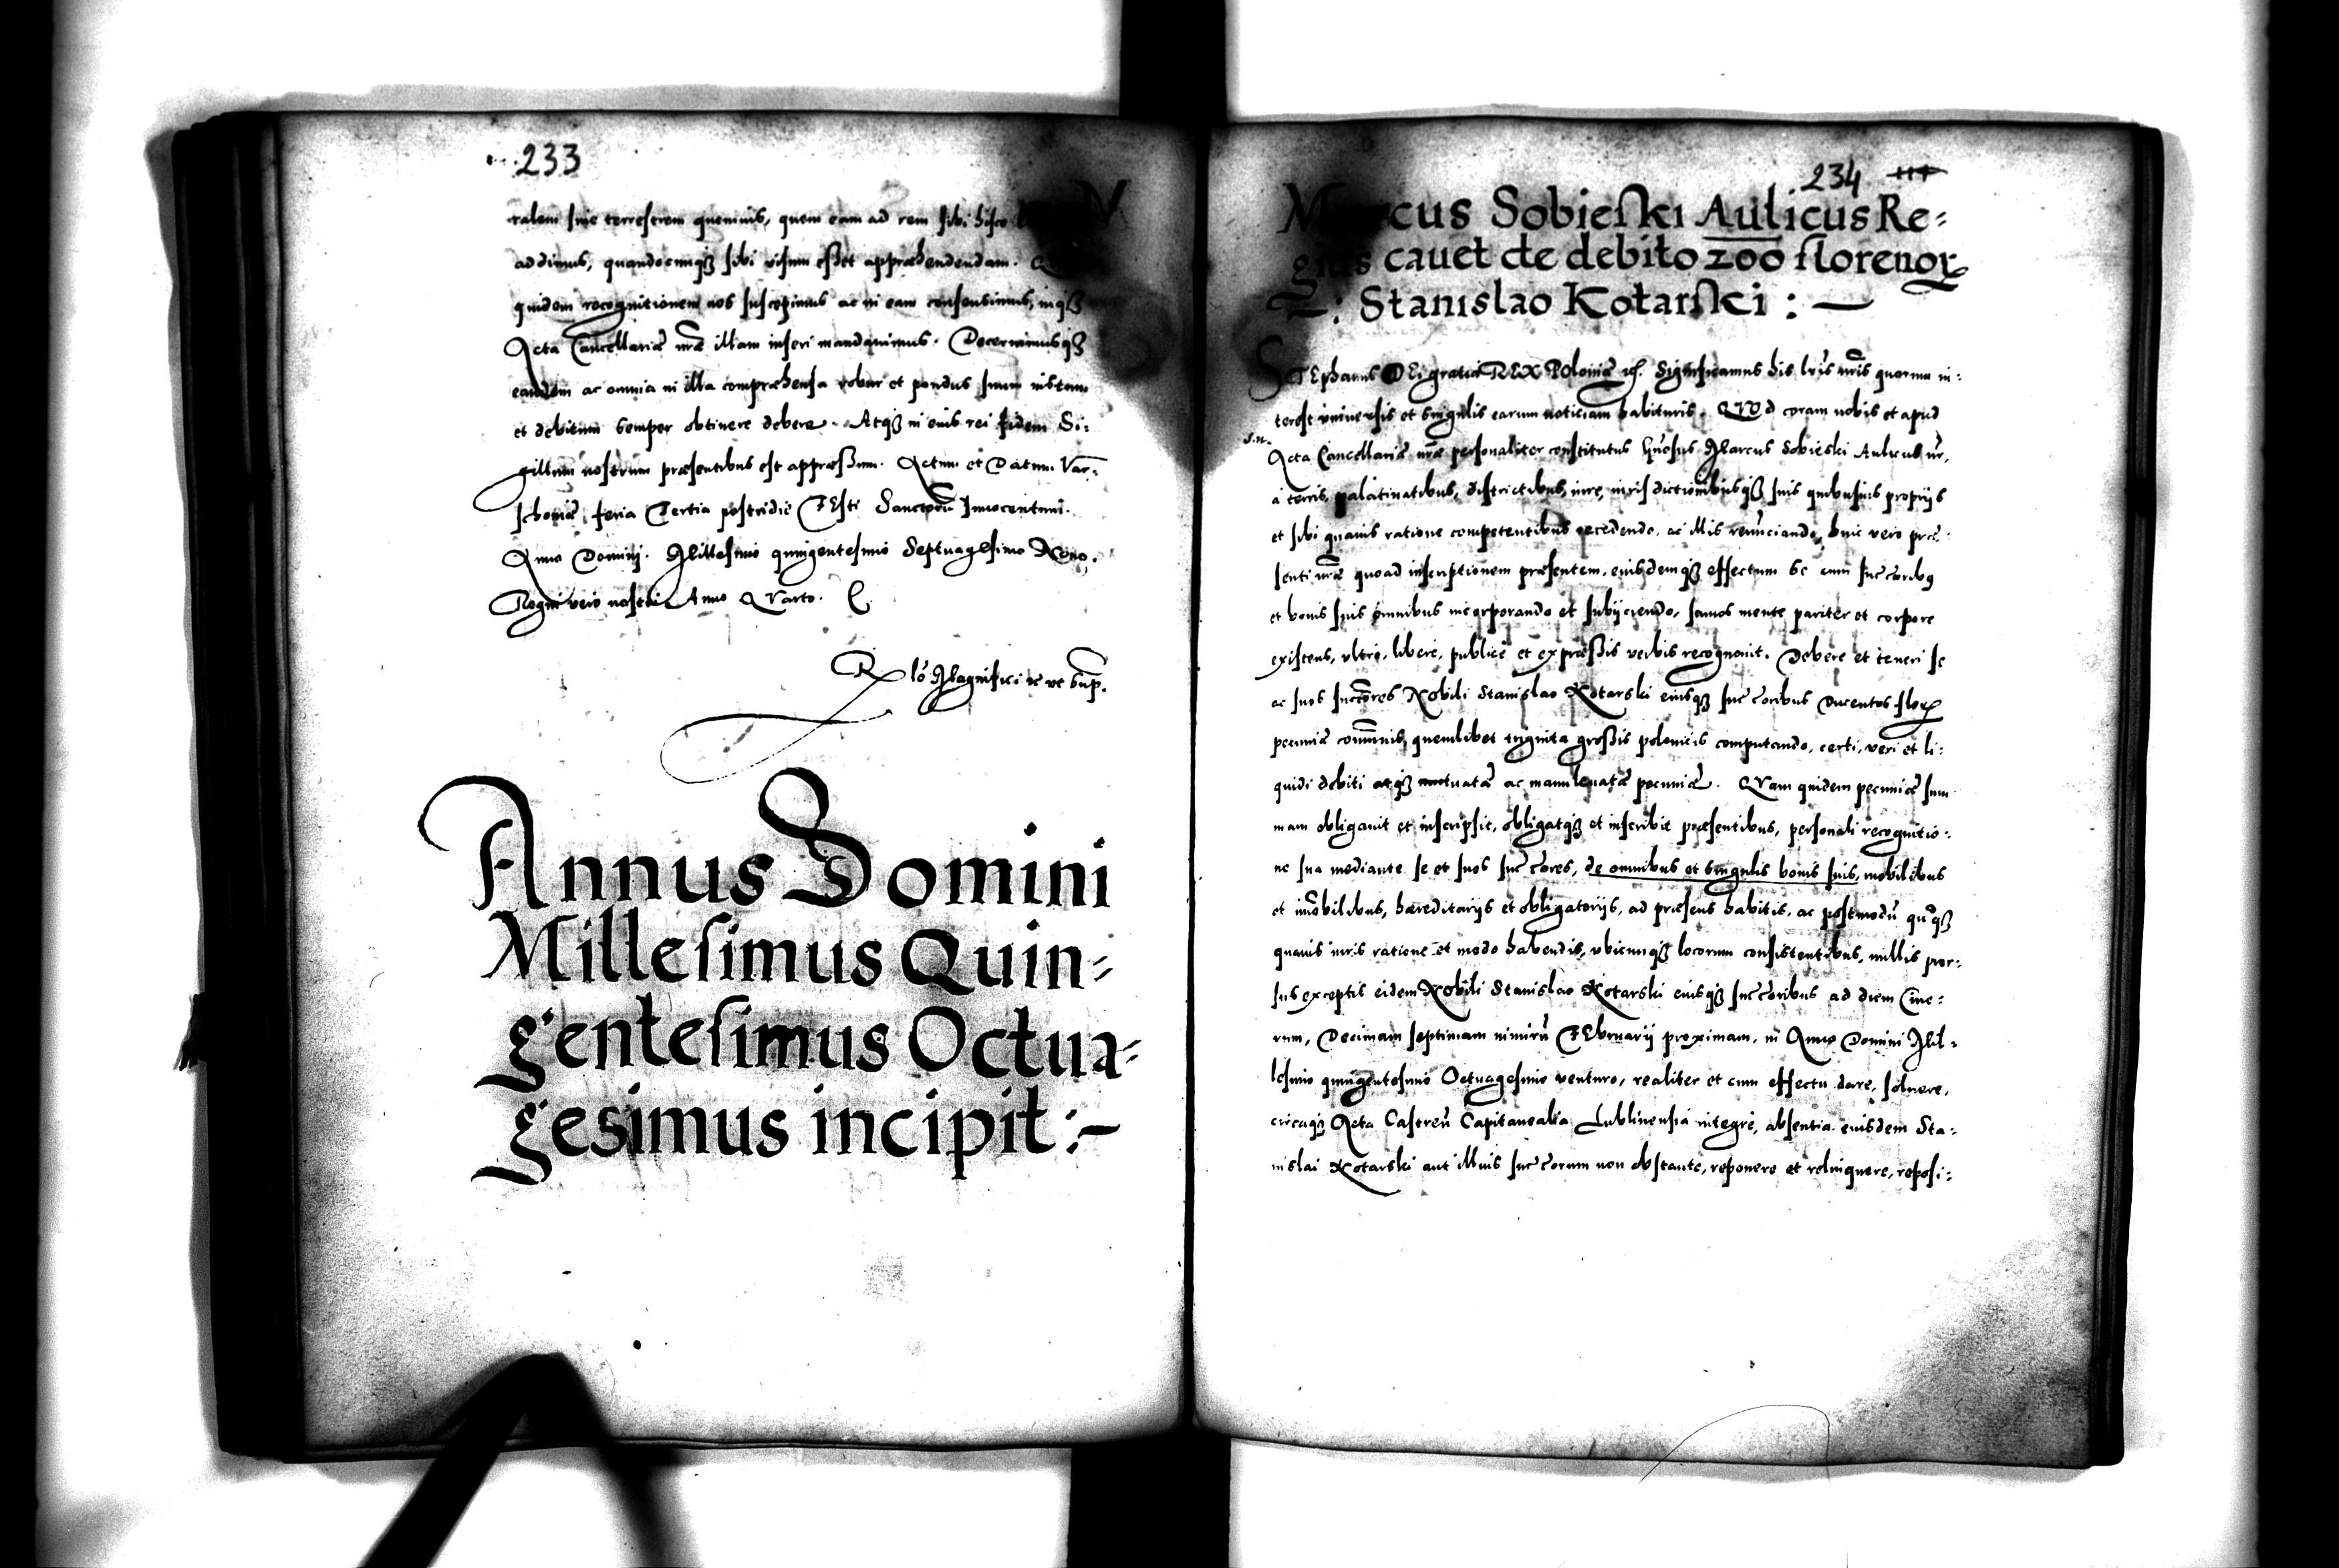 233
ralem siue terrestrem quemuis, quem eam ad rem sibi hisce
addimus, quandocunq sibi visum esset appræhendendam.
quidem recognitionem nos suscepimus ac in eam consensimus, inq
Acta Cancellariæ nræ illam inseri mandauimus. Decernimusq
eandem ac omnia in illa compræhensa robur et pondus suum iustum
et debitum semper obtinere debere. Atq in eius rei fidem Si:
gillum nostrum præsentibus est appressum. Actum et Datum Var:
schouiæ feria Tertia postridie FEsti Sanctorũ Innocentum.
Anno Domini. Millesimo quingentesimo Septuagesimo Nono.
Regni vero nostri Anno QVarto.
Rlõ Magnifici ut sup.
Annus Domini
Millesimus Quin-
gentesimus Octua-
gesimus incipit:-
234
Marcus Sobieski Aulicus Re:
gius cauet de debito 200 florenor
: Stanislao Kotarski :
STEphanus DEi gratia REX Poloniæ etc. Significamus his lris nris quorum in:
terest vniuersis et singulis earum noticiam habituris. QVOd coram nobis et apud
Acta Cancellariæ nræ personaliter constitutus Gñosus Marcus Sobieski Aulicus nr,
a terris, palatinatibus, districtibus, iure, iurisdictionibusq suis quibusuis proprijs
et sibi quauis ratione competentibus recedendo, ac illis renunciando, huic vero præ
senti nræ quoad inscriptionem præsentem, eiusdemq effectum se cum succorib9
et bonis suis omnibus incorporando et subijciendo, sanus mente pariter et corpore
existens, vltro, libere, publice et expressis verbis recognouit. Debere et teneri se
ac suos succores Nobili Stanislao Kotarski eiusq succoribus Ducentos flor
pecuniæ communis, quemlibet triginta grossis polonicis computando, certi, veri et li:
quidi debiti atq mutuatæ ac manuleuatæ pecuniæ. QVam quidem pecuniæ sum
mam obligauit et inscripsit, obligatq et inscribit præsentibus, personali recognitio:
ne sua mediante se et suos succores, de omnibus et singulis bonis suis, mobilibus
et imobilibus, hæreditarijs et obligatorijs, ad præsens habitis, ac postmodũ quoq
quauis iuris ratione et modo habendis, vbicunq locorum consistentibus, nullis pror:
sus exceptis eidem Nobili Stanislao Kotarski eiusq succoribus ad diem Cine:
rum, Decimam septimam nimirũ FEbruarij proximam, in Anno Domini Mil:
lesimo quingentesimo Octuagesimo venturo, realiter et cum effectu dare, soluere,
circaq Acta Castreñ Capitanealia Lublinensia integre, absentia eiusdem Sta:
nislai Kotarski aut illius succorum non obstante, reponere et relinquere, reposi: